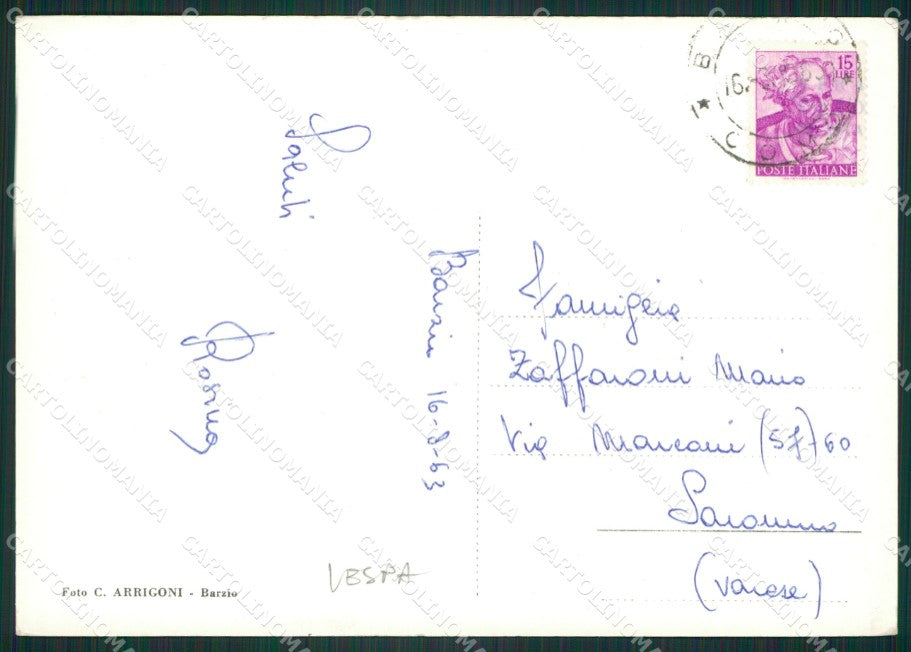 Saluti
Rosina
Barzio 16-8-63
Famiglia
Zaffaroni Mario
Via Marconi (57) 60
Saronno
(Varese)
15
LIRE
POSTE ITALIANE
COMO
Foto C. ARRIGONI - Barzio
VESPA
CARTOLINOMANIA